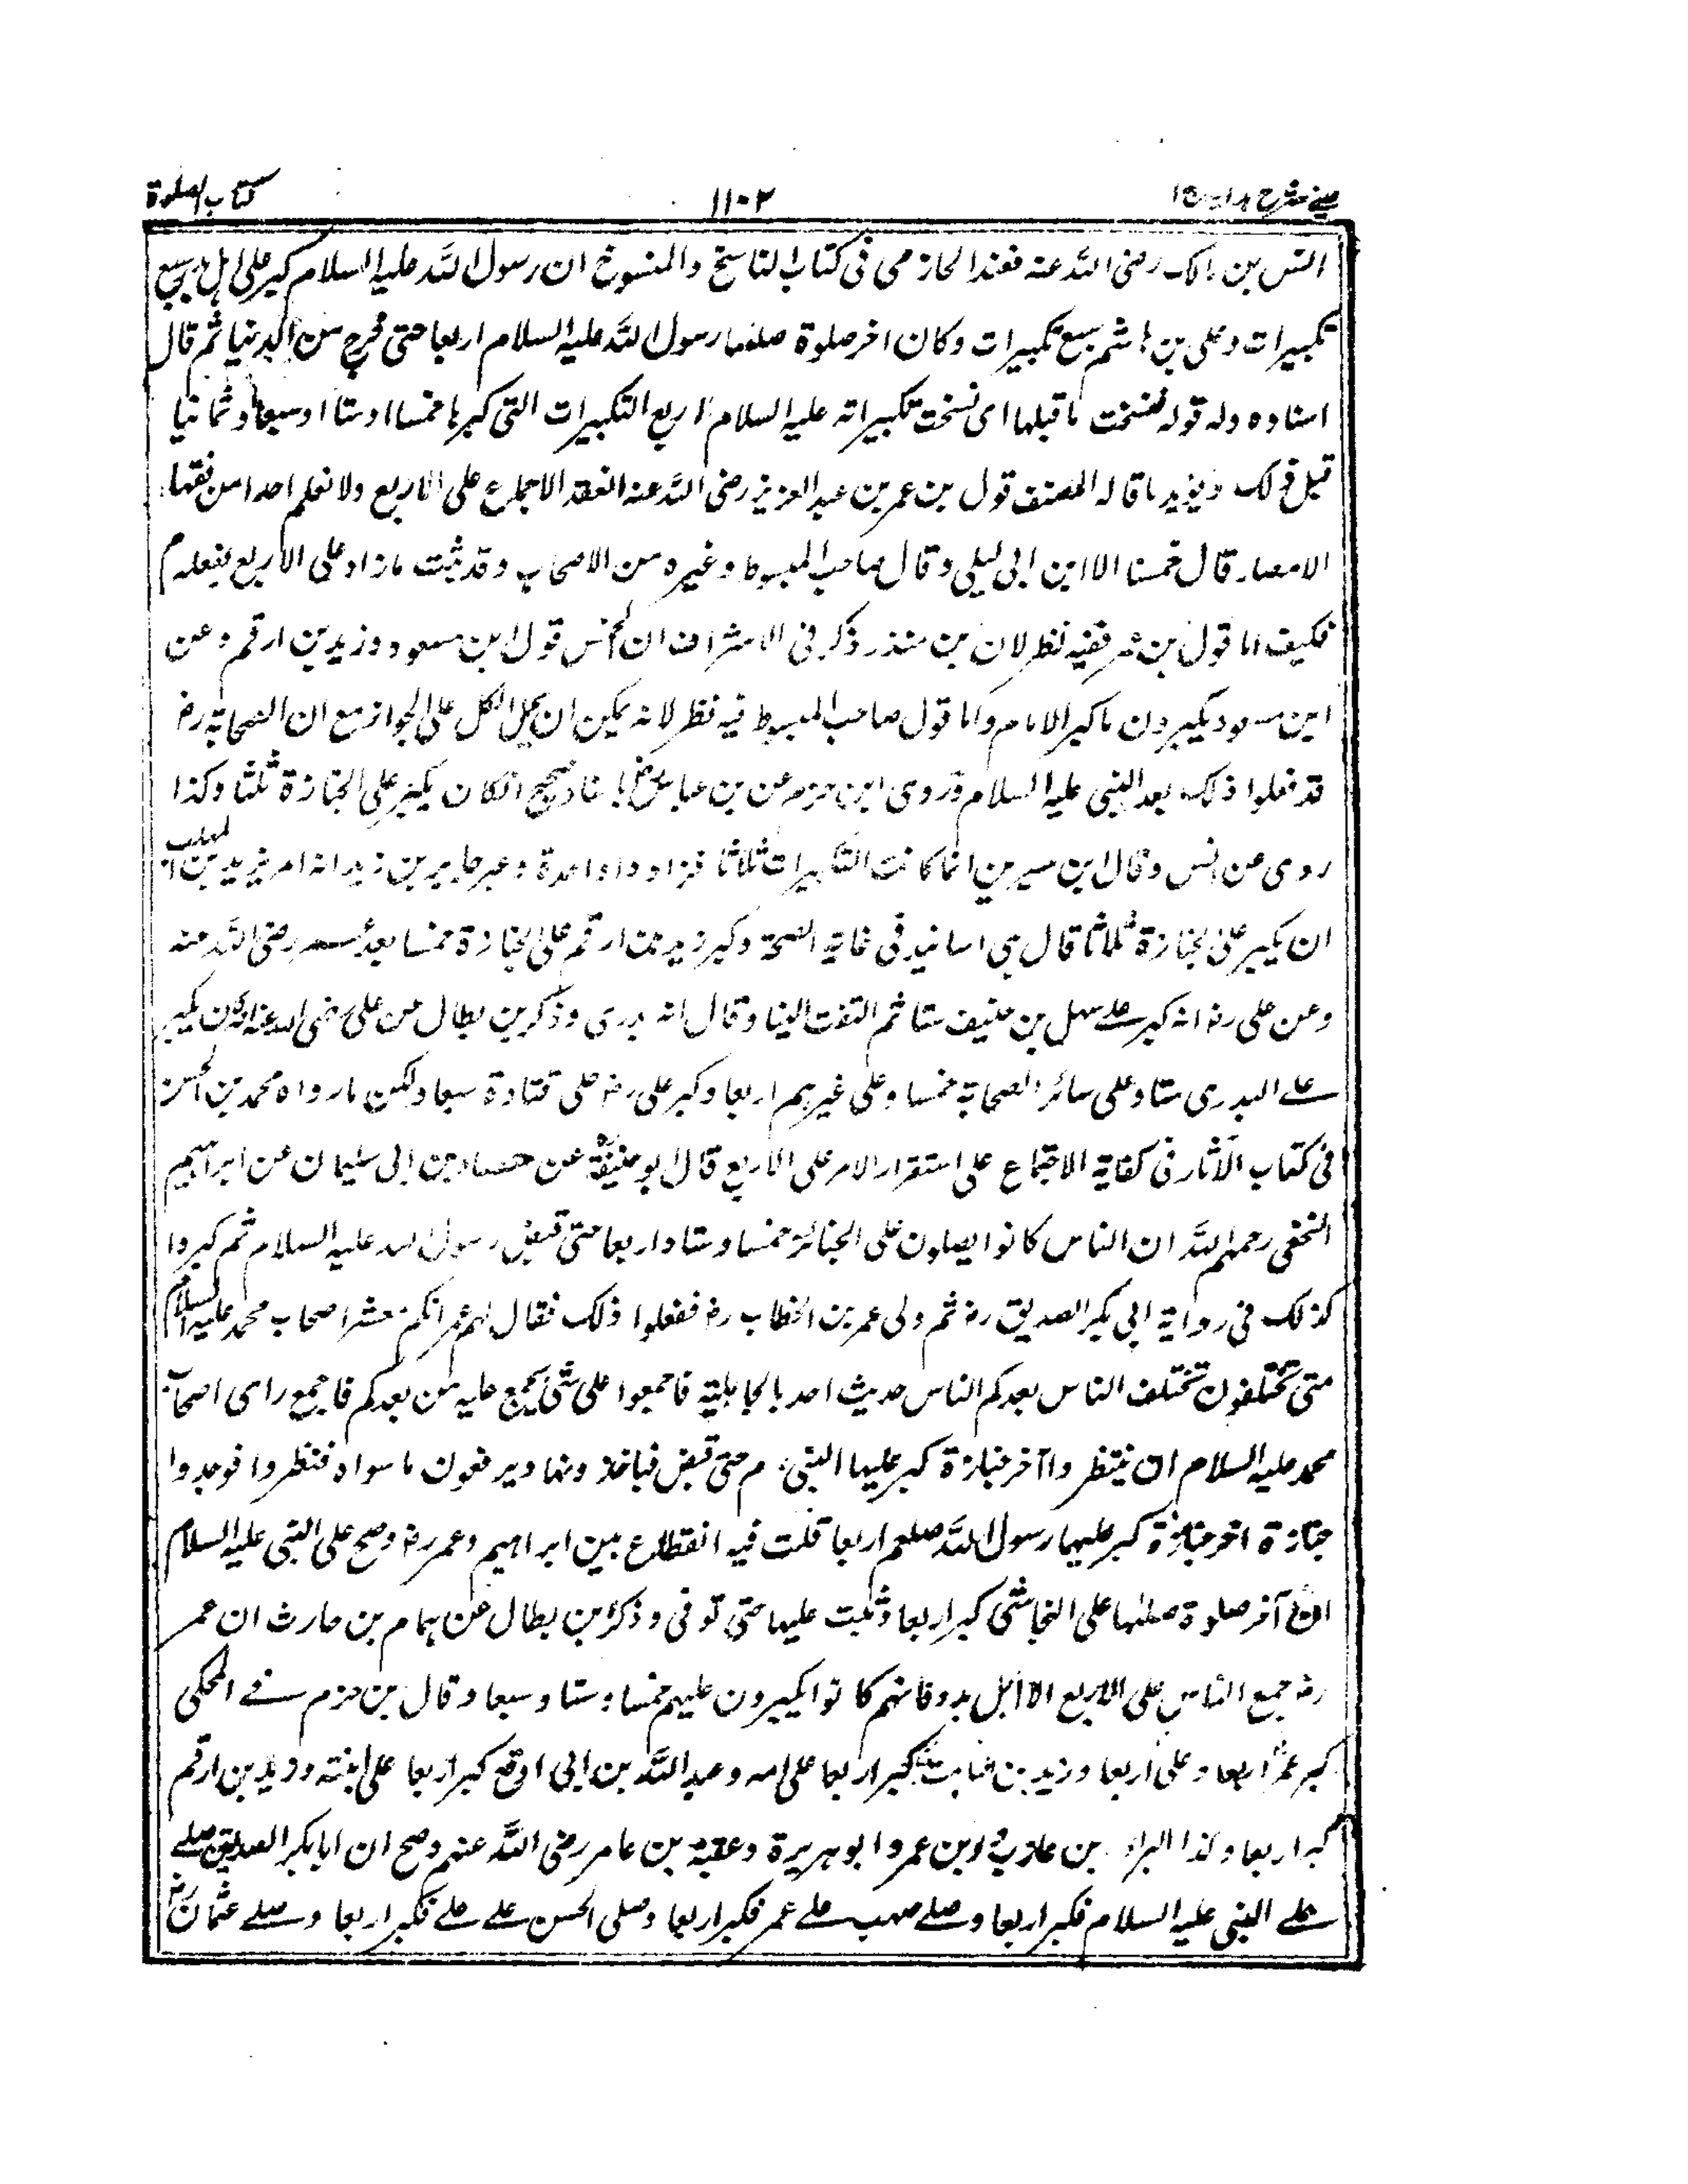 عينى شرح هدايه ج ١
١١٠٢
كتاب الصلوة
انس بن مالك رضى الله عنه فعند الحازمى فى كتاب الناسخ والمنسوخ ان رسول الله عليه السلام كبر على اهل بدر سبع
تكبيرات وعلى بن هاشم سبع تكبيرات وكان اخر صلوة صلها رسول الله عليه السلام اربعا حتى خرج من الدنيا ثم قال
اسناده وله قوله فنسخت ما قبلها اى نسخت تكبيراته عليه السلام اربع التكبيرات التى كبرها خمسا اوستا اوسبعا وثمانيا
قبل ذلك ويؤيد ما قاله المصنف قول بن عمر بن عبد العزيز رضى الله عنه انعقد الاجماع على الاربع ولا نعلم احدا من فقهاء
الامصار قال خمسا الا ابن ابى ليلى وقال صاحب المبسوط وغيره من الاصحاب وقد ثبت ما زاد على الاربع بفعله م
فكيف اما قول بن عمر ففيه نظر لان بن منذر ذكر فى الاشراف ان الخمس قول ابن مسعود وزيد بن ارقم وعن
ابن مسعود يكبرون ما كبر الامام واما قول صاحب المبسوط فيه نظر لانه يمكن ان يحمل الكل على الجواز مع ان الصحابة رض
قد فعلوا ذلك بعد النبى عليه السلام وروى ابن حزم عن بن عباس رض باسناد صحيح انه كان يكبر على الجنازة ثلثا وكذا
روى عن انس وقال ابن سيرين انما كانت التكبيرات ثلاثا فزادوا واحدة وعبر جابر بن زيد انه امر يزيد بن المهلب
ان يكبر على جنازة ثلاثا قال هى اسانيد فى غاية الصحة وكبر زيد بن ارقم على الجنازة خمسا بعد عمر رضى الله عنه
وعن على رض انه كبر على سهل بن حنيف ستا ثم التفت الينا وقال انه بدرى وذكر بن بطال عن على رضى الله عنه انه كان يكبر
على البدرى ستا وعلى سائر الصحابة خمسا وعلى غيرهم اربعا وكبر على رض على قتادة سبعا ولكن ما رواه محمد بن الحسن
فى كتاب الآثار فى كفاية الاجتماع على استقرار الامر على الاربع قال ابو حنيفة عن حماد بن ابى سليمان عن ابراهيم
النخعى رحمهم الله ان الناس كانوا يصلون على الجنائز خمسا وستا واربعا حتى قبض رسول الله عليه السلام ثم كبروا
كذلك فى رواية ابى بكر الصديق رض ثم ولى عمر بن الخطاب رض ففعلوا ذلك فقال لهم عمر انكم معشر اصحاب محمد عليه السلام
متى تختلفون تختلف الناس بعدكم الناس حديث احد بالجاهلية فاجمعوا على شئ يجمع عليه من بعدكم فاجمع راى اصحاب
محمد عليه السلام ان ينتظروا آخر جنازة كبر عليها النبى م حتى قبض فياخذ ونها ويرفعون ما سواه فنظروا فوجدوا
جنازة اخر جنازة كبر عليها رسول الله صلعم اربعا قلت فيه انقطاع بين ابراهيم وعمر رض وصح على النبى عليه السلام
ان آخر صلوة صلها على النجاشى كبر اربعا وثبت عليها حتى توفى وذكر ابن بطال عن همام بن حارث ان عمر
رض جمع الناس على الاربع الا اهل بدر فانهم كانوا يكبرون عليهم خمسا وستا وسبعا وقال بن حزم فى المحلى
كبر عمر اربعا وعلى اربعا وزيد بن ثابت كبر اربعا على امه وعبد الله بن ابى اوفى كبر اربعا على ابنته وزيد بن ارقم
كبر اربعا وكذا البراء بن عازب وابن عمر وابو هريرة وعقبة بن عامر رضى الله عنهم وصح ان ابا بكر الصديق صلى
على النبى عليه السلام فكبر اربعا وصلى صهيب على عمر فكبر اربعا وصلى الحسن على على فكبر اربعا وصلى عثمان رض